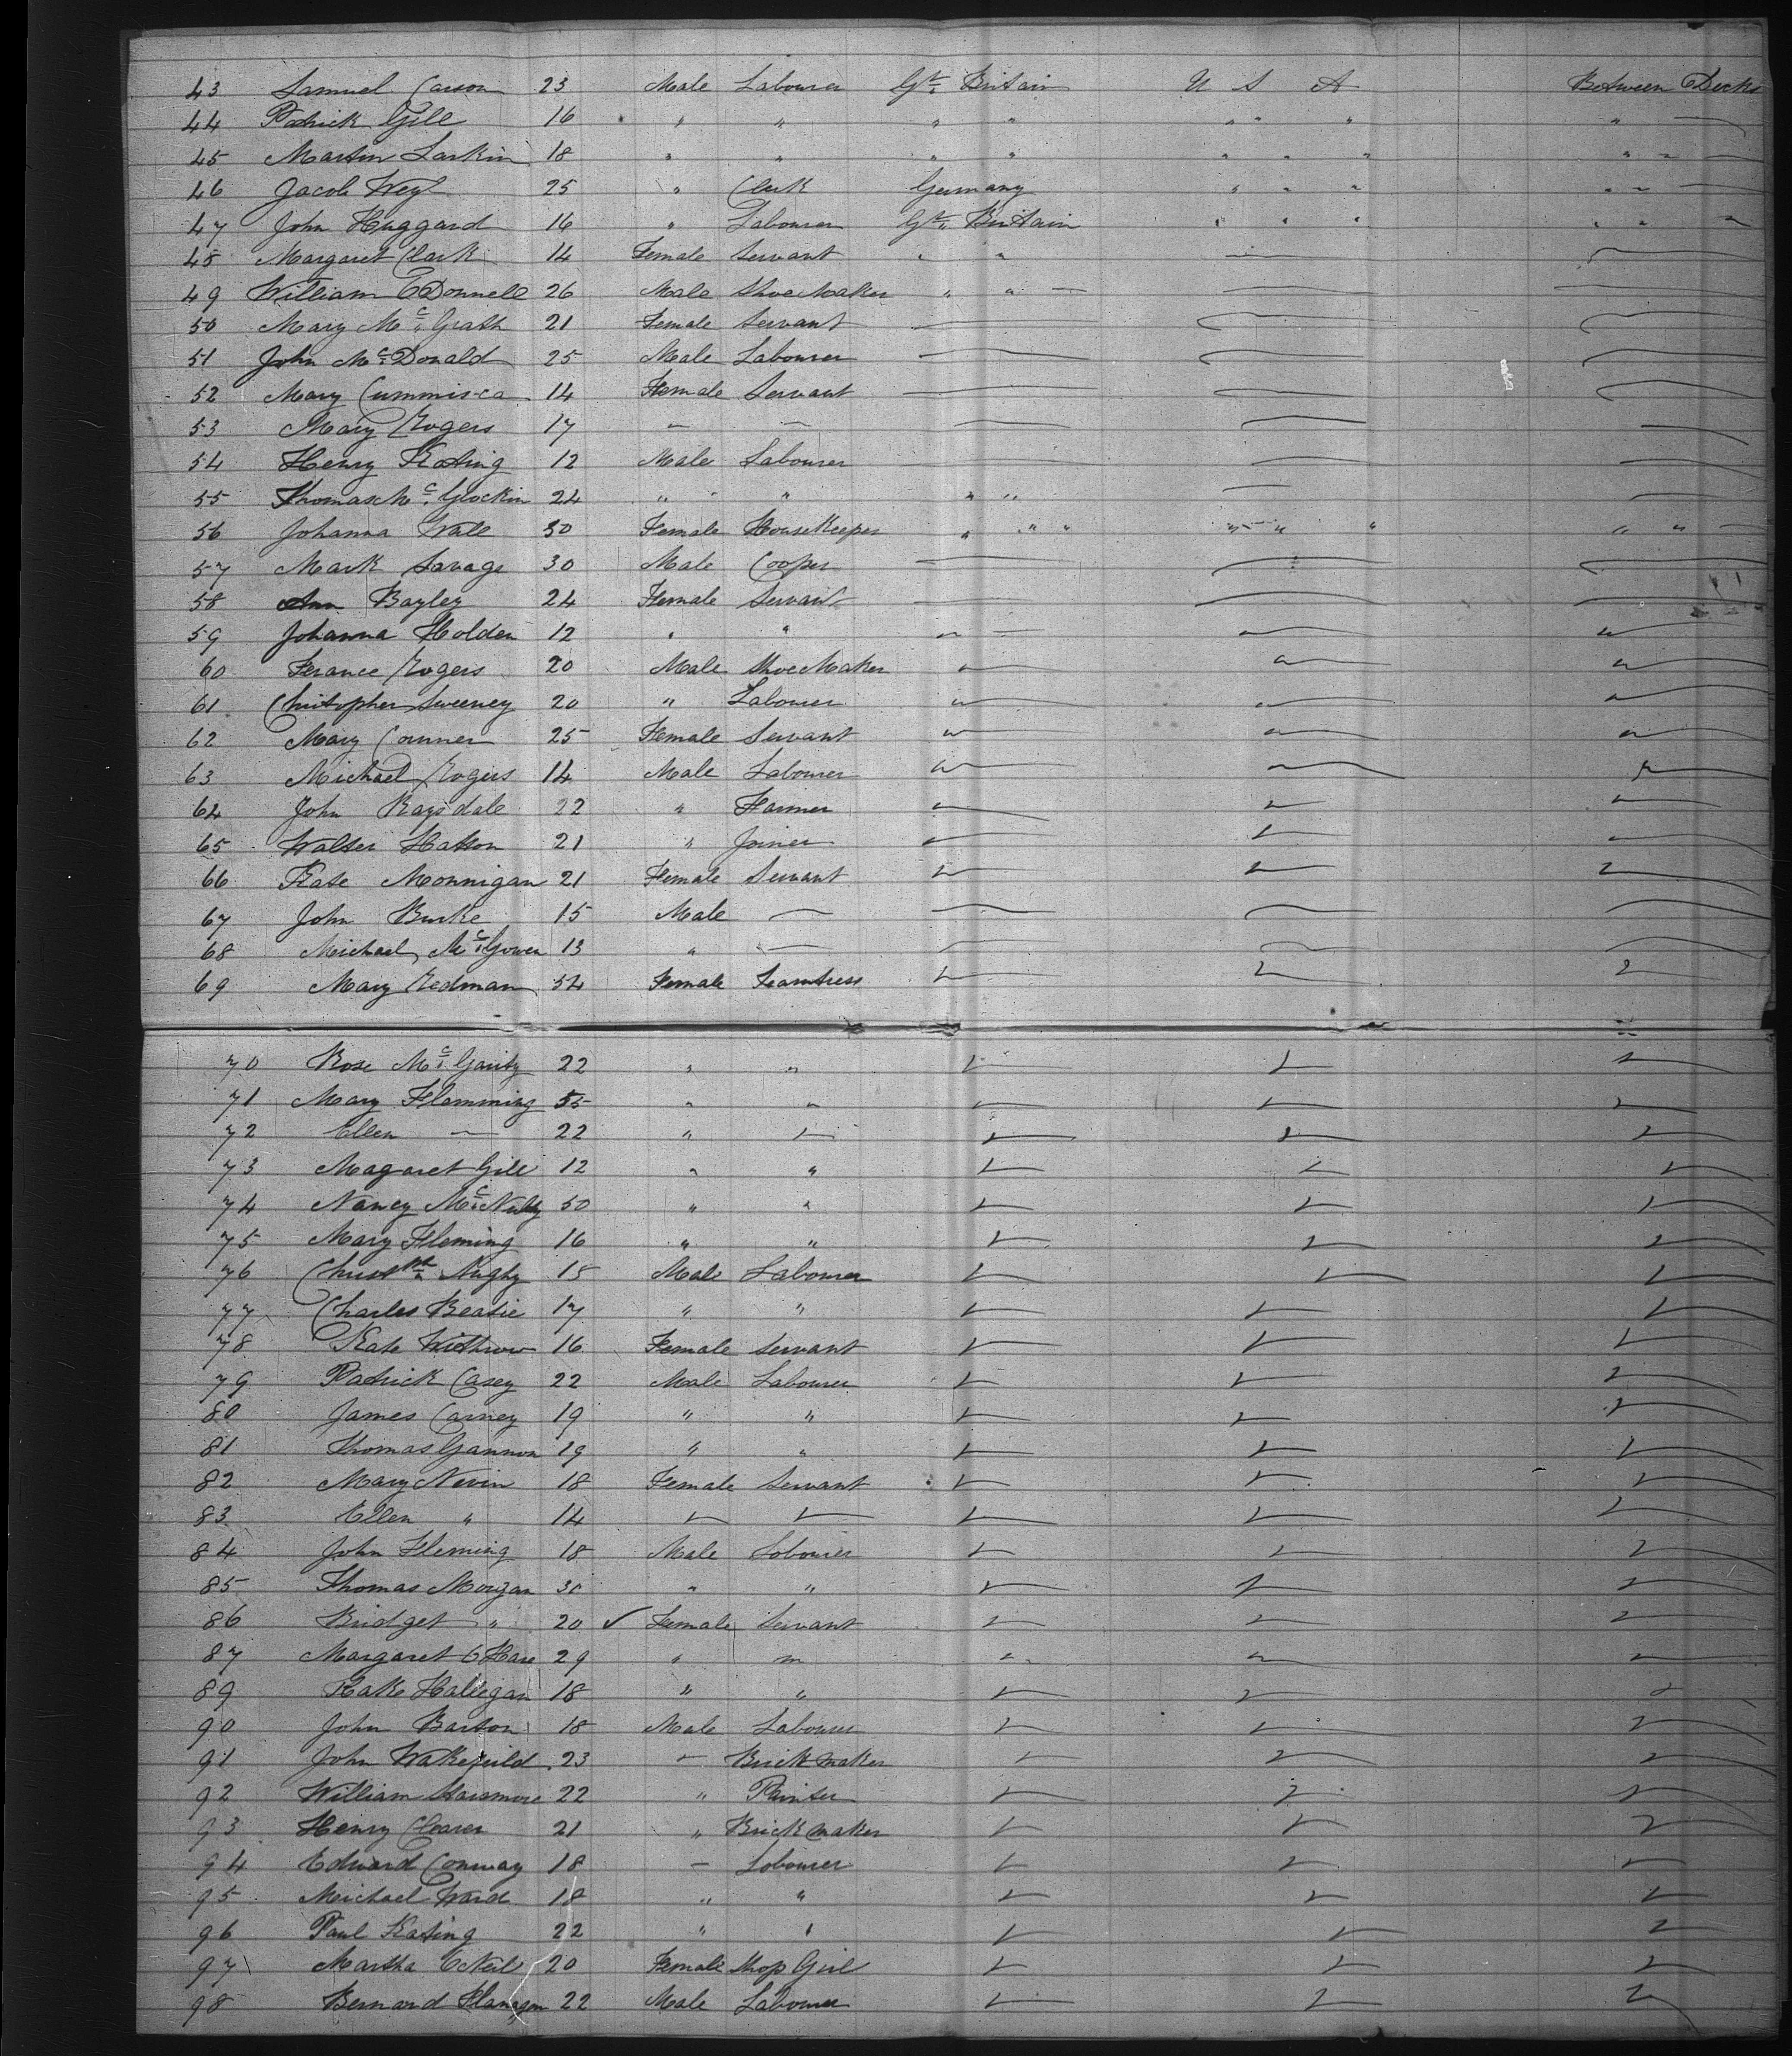 43 Samuel Carson 23 Male Labourer Gt. Britain U S A Between Decks
44 Patrick Gill 16 " " " " " " " "
45 Martin Larkin 18 " " " " " " " " "
46 Jacob Weyl 25 " Clerk Germany " " " " "
47 John Huggard 16 " Labourer Gt. Britain " " " " " "
48 Margaret Clark 14 Female Servant " "
49 William O'Donnell 26 Male Shoe Maker " " —
50 Mary Mc Grath 21 Female Servant —
51 John Mc Donald 25 Male Labourer —
52 Mary Cummisca 14 Female Servant —
53 Mary Rogers 17 — — —
54 Henry Kating 12 Male Labourer —
55 Thomas Mc Glockin 24 " " " "
56 Johanna Wall 30 Female House Keeper " " " " " " " " "
57 Mark Savage 30 Male Cooper —
58 Ann Bayley 24 Female Servant —
59 Johanna Holden 12 " " "
60 Ferance Rogers 20 Male Shoe Maker "
61 Chritopher Sweeney 20 " Labourer "
62 Mary Conner 25 Female Servant "
63 Michael Rogers 14 Male Labourer "
64 John Ragsdale 22 " Farmer "
65 Walter Hatton 21 " Joiner "
66 Kate Monnigan 21 Female Servant "
67 John Burke 15 Male — —
68 Michael Mc Gowen 13 " — —
69 Mary Redman 54 Female Seamtress "
70 Rose Mc Garity 22 " " "
71 Mary Flemming 55 " " "
72 Ellen — 22 " " "
73 Magaret Gill 12 " " "
74 Nancy Mc Nulty 50 " " "
75 Mary Fleming 16 " " "
76 15 Male Labourer "
77 Charles Beatie 17 " " "
78 Kate Withrow 16 Female Servant "
79 Patrick Casey 22 Male Labourer "
80 James Carney 19 " " "
81 Thomas Gannon 19 " " "
82 Mary Nevin 18 Female Servant "
83 Ellen " 14 " " "
84 John Fleming 18 Male Labourer "
85 Thomas Morgan 30 " " "
86 Bridget " 20 ✓ Female Servant "
87 Margaret O'Hare 29 " " "
89 Kate Halligan 18 " " "
90 John Barton 18 Male Labourer "
91 John Wakefeild 23 " Brick maker "
92 William 22 " Painter "
93 Henry Clearer 21 " Brick maker "
94 Edward Conway 18 — Labourer "
95 Michael Ward 18 " " "
96 Paul Kating 22 " " "
97 Martha O'Neil 20 Female Shop Girl "
98 Bernard Flanagan 22 Male Labourer "